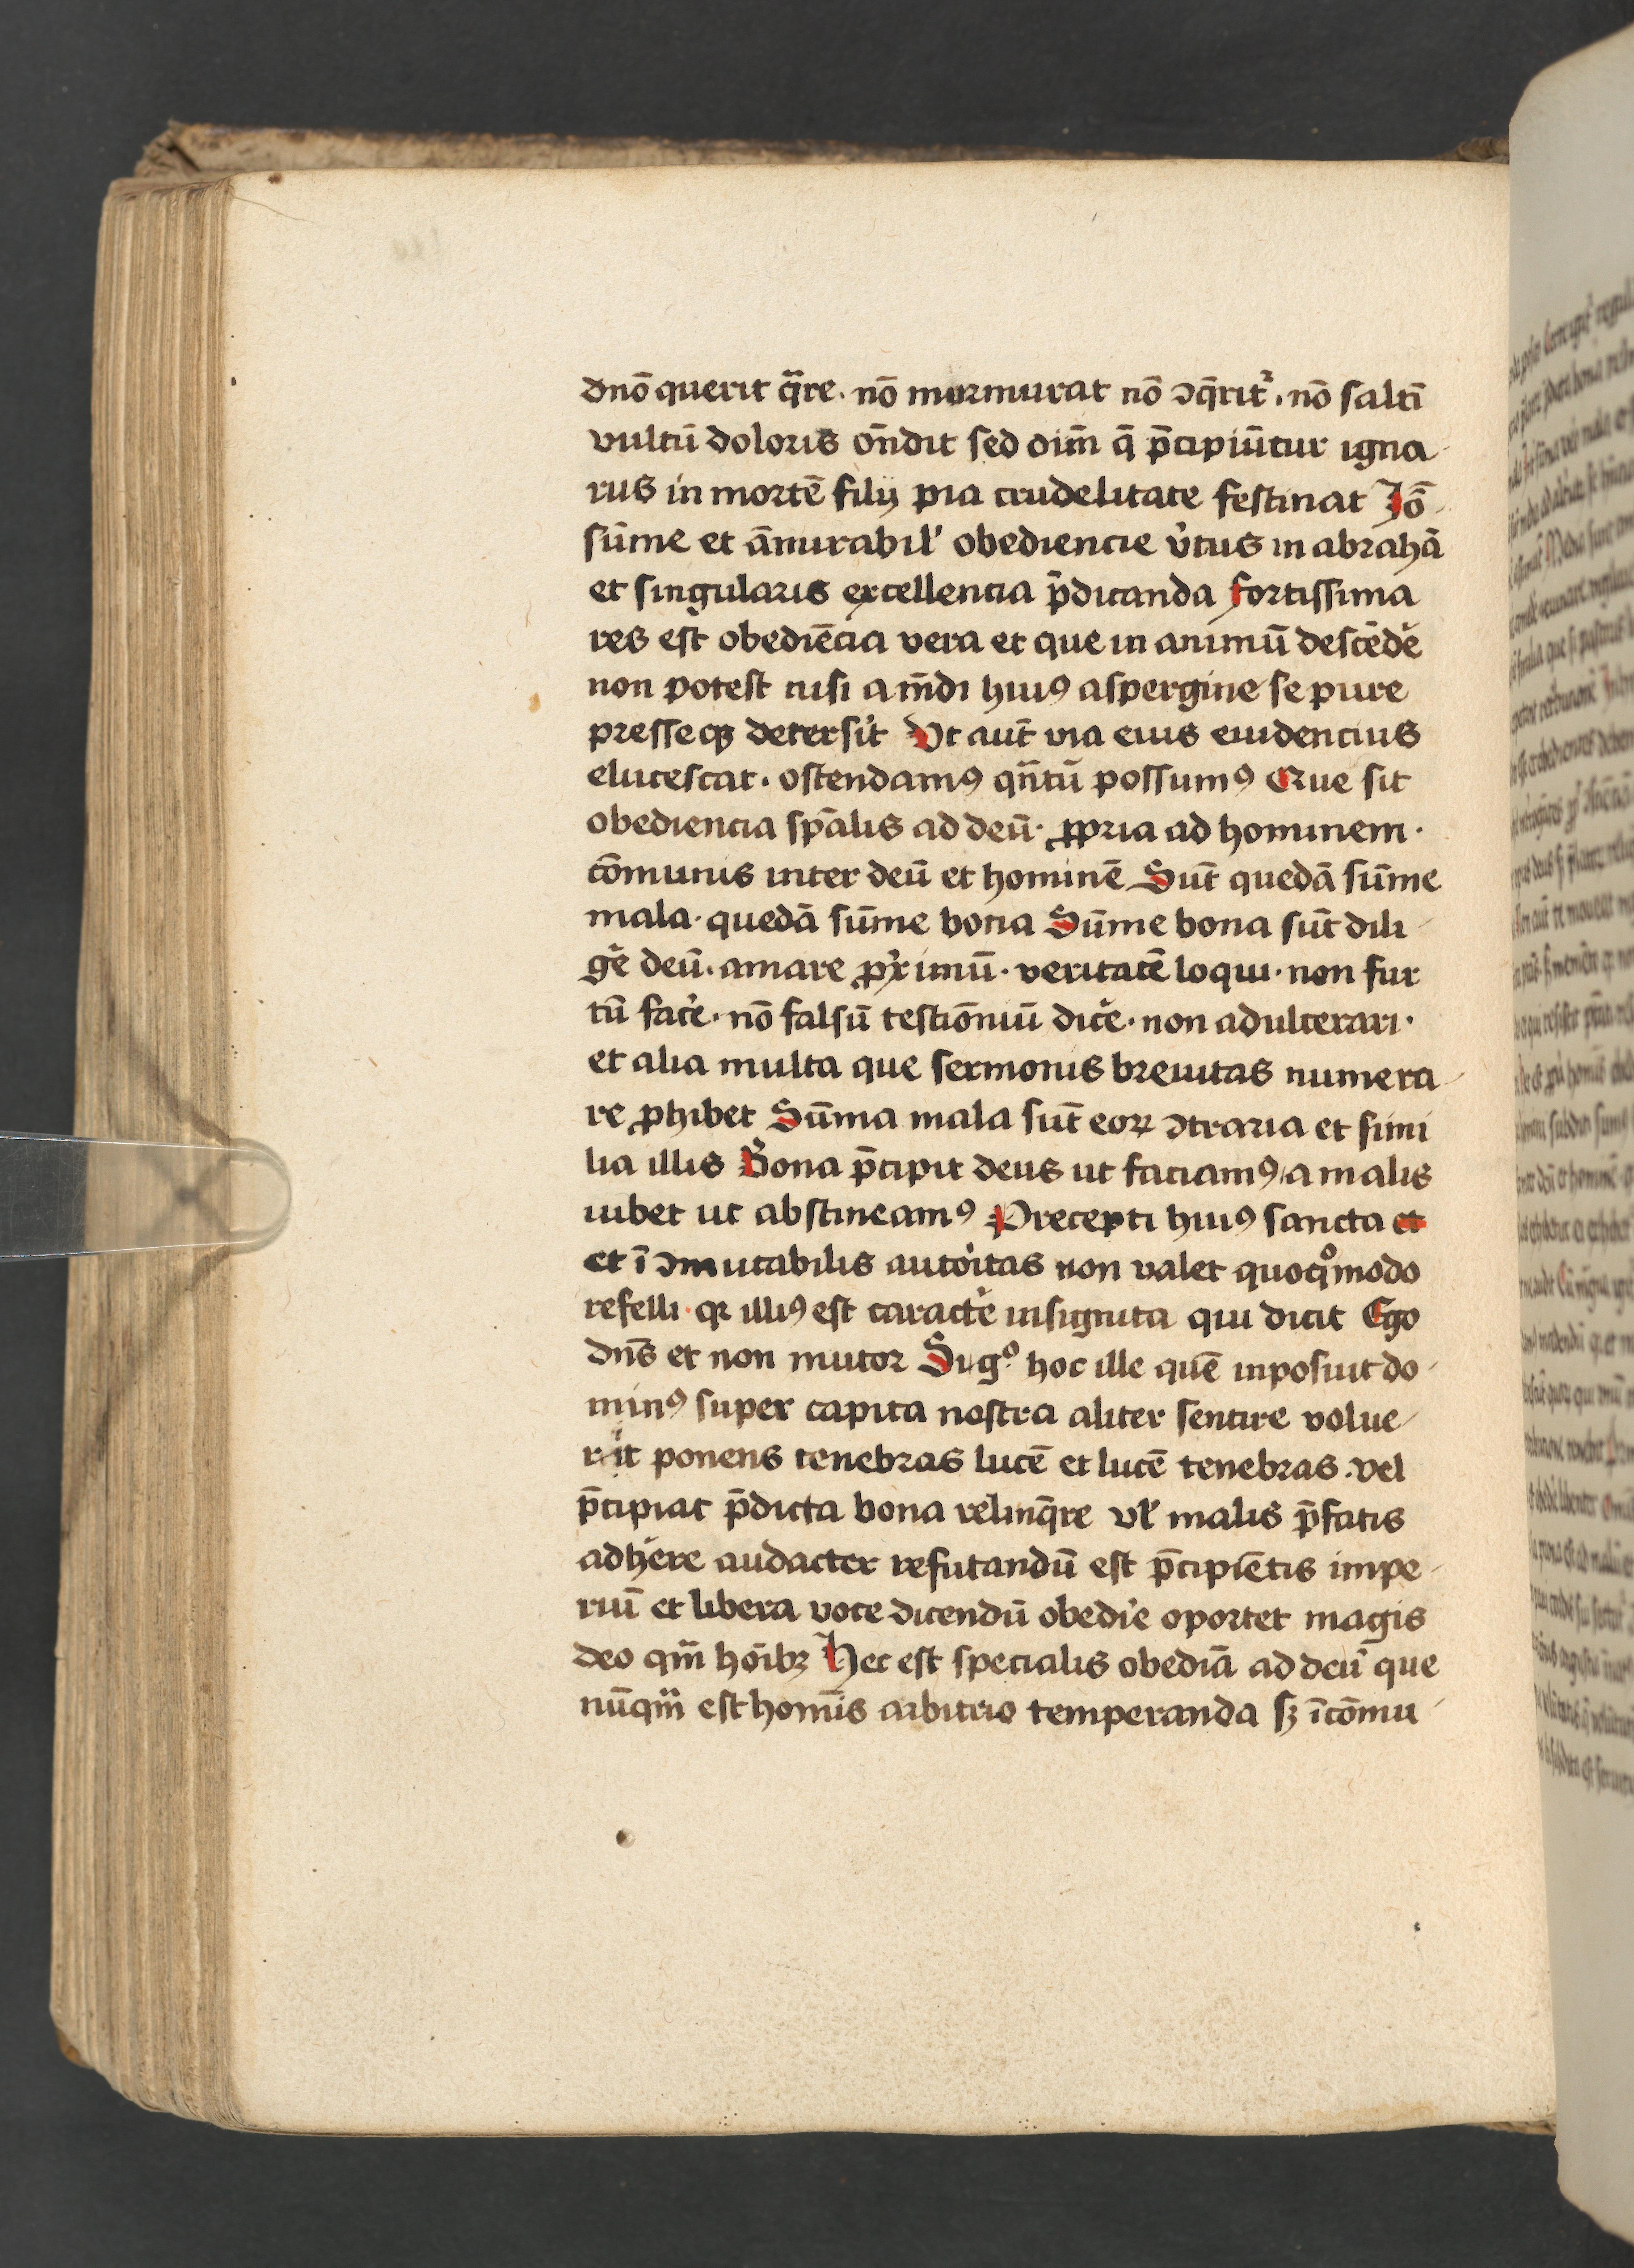 dnō querit q̄re. nō murmurat nō ɔq̄rit᷑. nō saltī
vultū doloris on̄dit sed oīm q̄ p̄cipiūtur igna
rus in mortē filij pia crudelitate festinat Iō
sūme et ām̄irabil' obediencie v̓tus in abrahā
et singularis excellencia p̄dicanda fortissima
res est obediēcia vera et que in animū descēde᷑
non potest nisi a mūdi huiꝰ aspergine se pure
presseqꝫ detersit Ut aūt via eius euidencius
elucescat. ostendamꝰ qn̄tū possumꝰ Que sit
obediencia spālis ad deū. ꝓpria ad hominem.
cōmunis inter deū et hominē Sūt quedā sūme
mala. quedā sūme bona Sūme bona sūt dili
ge᷑ deū. amare ꝓximū. veritatē loqui. non fur
tū face᷑. nō falsū testiōniū dice᷑. non adulterari.
et alia multa que sermonis breuitas numera
re ꝓhibet Sūma mala sūt eoꝝ ɔtraria et simi
lia illis Bona p̄cipit deus ut faciamꝰ a malis
iubet ut abstineamꝰ Precepti huiꝰ sancta et
et īɔmutabilis autoi᷑tas non valet quoqͦmodo
refelli. qꝛ illiꝰ est caracte᷑ insignita qui dicit Ego
dn̄s et non mutor Si gͦ hoc ille quē inposuit do
minꝰ super capita nostra aliter sentire volue
rit ponens tenebras lucē et lucē tenebras. vel
p̄cipiat p̄dicta bona relinq̄re vl̓ malis p̄fatis
adhe᷑re audacter refutandū est p̄cipiētis impe
riū et libera voce dicendū obedi᷑e oportet magis
deo qm̄ hoībꝫ Hec est specialis obediā ad deū que
nūqm̄ est homīs arbitrio temperanda sꝫ īcōmu